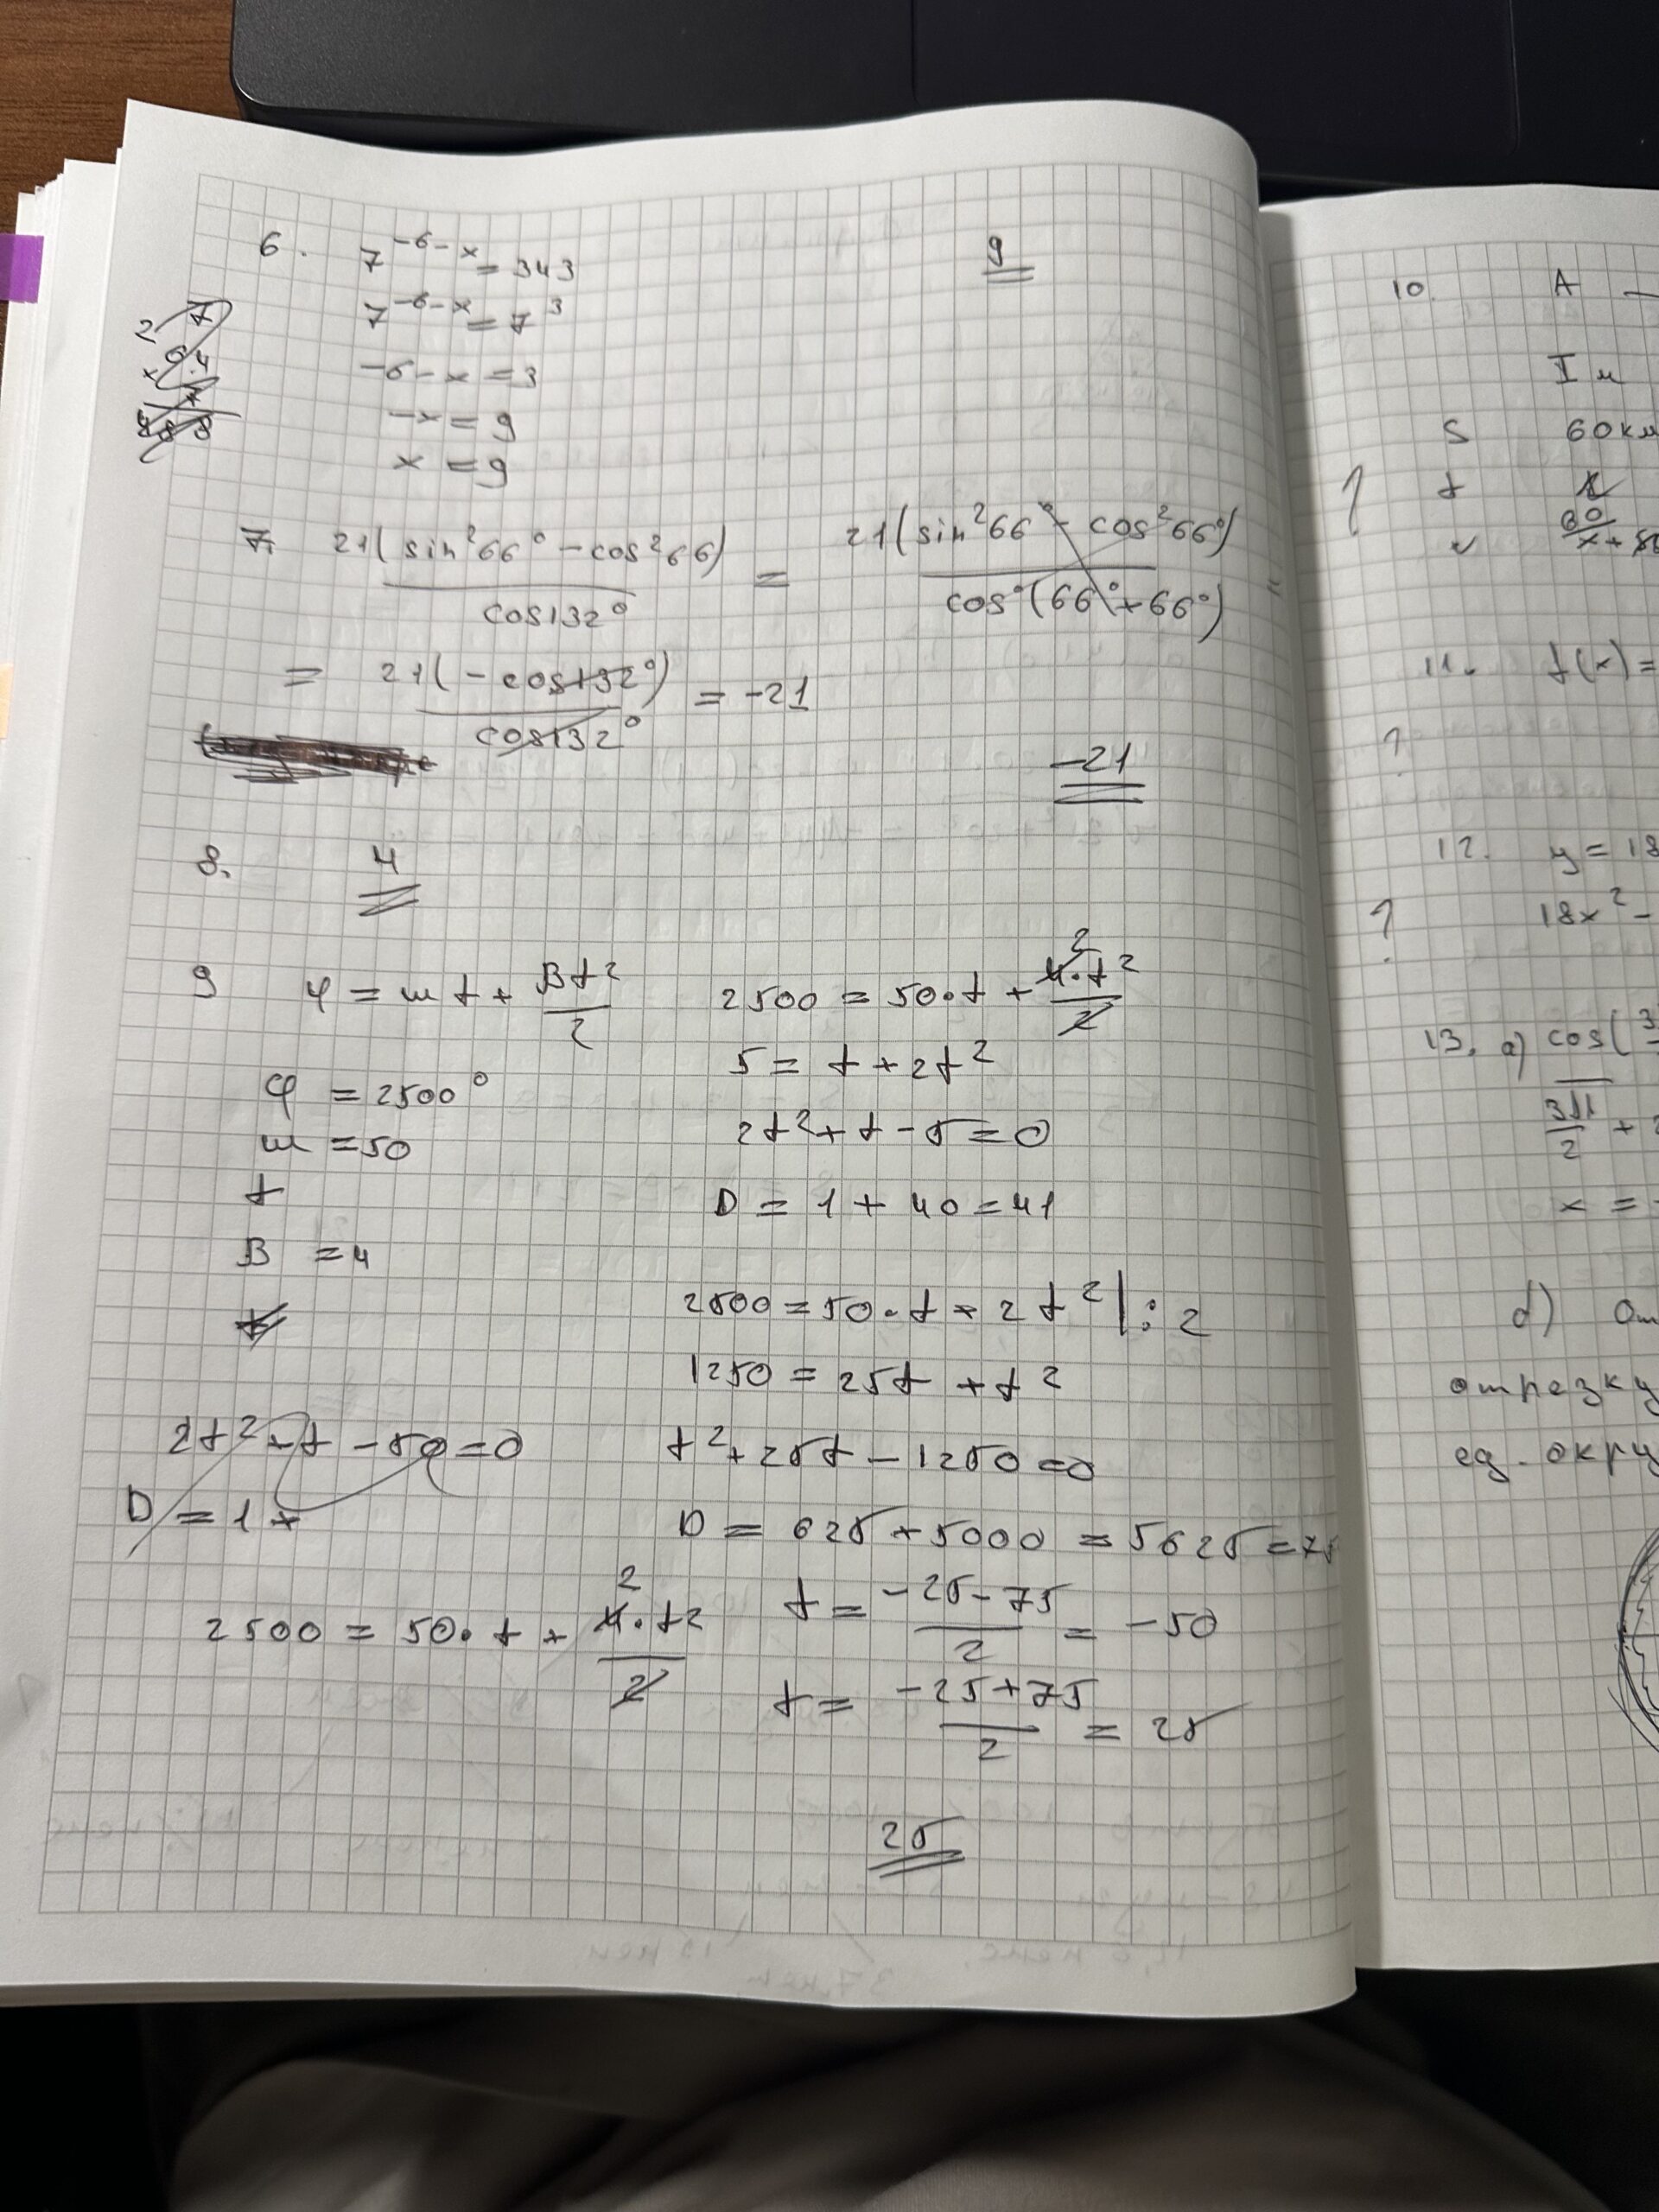 6. 7^{-6-x} = 343
9
7^{-6-x} = 7^3
-6-x = 3
-x = 9
x = 9
7. 21(sin²66° - cos²66) / cos132° = 21(sin²66° - cos²66°) / cos°(66°+66°) =
= 21(-cos132°) / cos132° = -21
-21
8. 4
9 φ = ωt + βt²/2
φ = 2500°
ω = 50
t
B = 4
t
2t² + t - 50 = 0
D = 1 +
2500 = 50·t + 4·t²/2
2
2500 = 50·t + 4·t²/2
2
5 = t + 2t²
2t² + t - 5 = 0
D = 1 + 40 = 41
2500 = 50·t + 2t² |:2
1250 = 25t + t²
t² + 25t - 1250 = 0
D = 625 + 5000 = 5625 = 75
t = (-25-75)/2 = -50
t = (-25+75)/2 = 25
25
10. A —
I м
S 60км
? t x
v 60/x +
11. f(x) =
?
12. y = 18
? 18x² -
13. а) cos(3
3π/2 +
x = -
б) От
отрезку
ед. окру